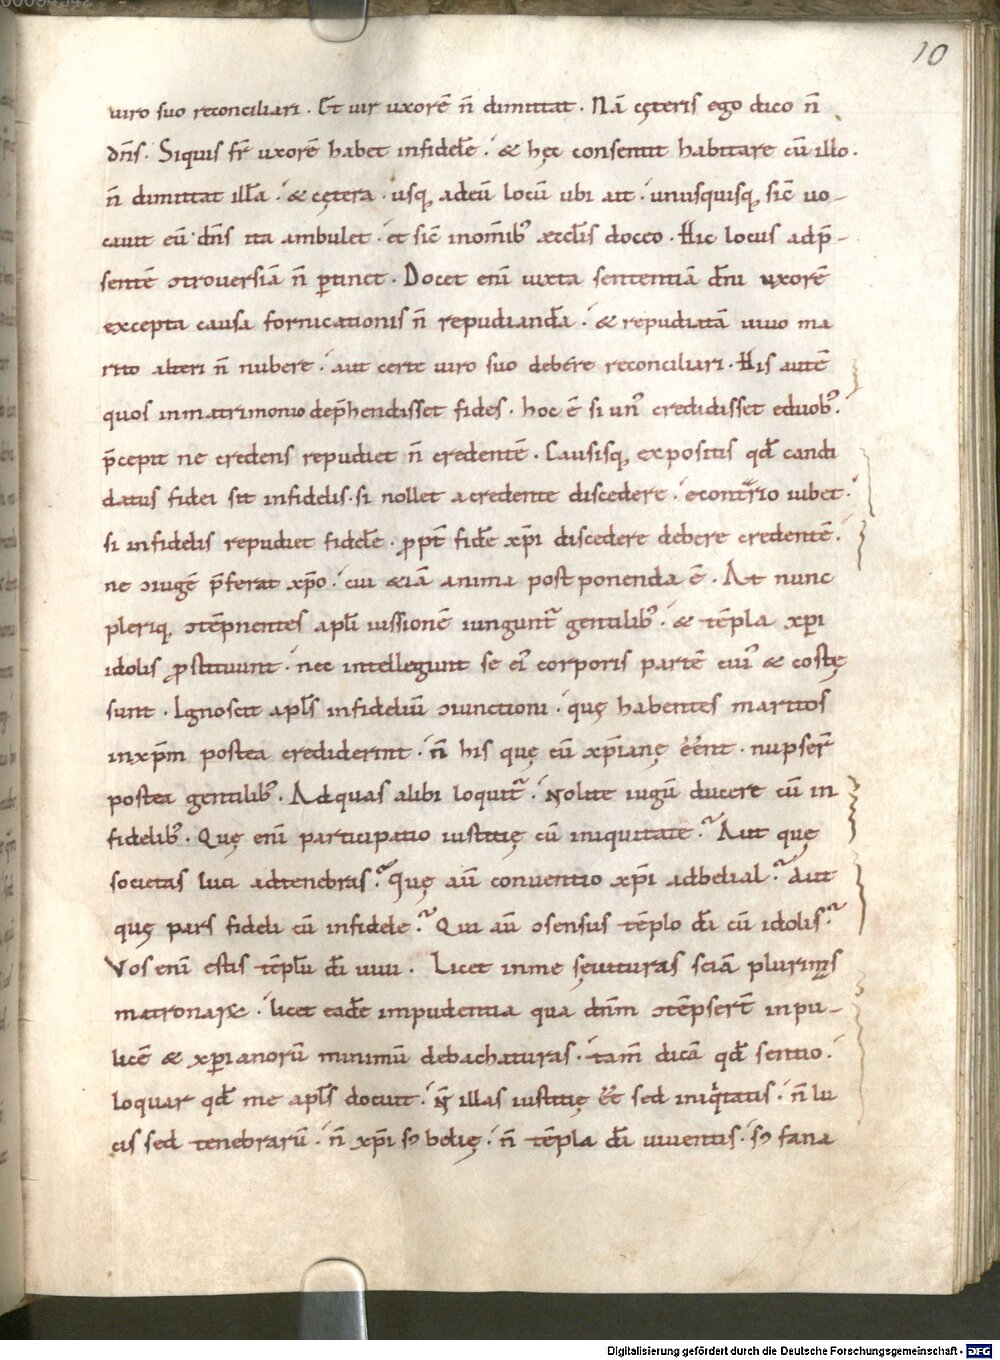 10
uiro suo reconciliari. Et uir uxorē n̄ dimittat. Nā cęteris ego dico n̄
dn̄s. Siquis fr̄ uxorē habet infidelē. & hęc consentit habitare cū illo.
n̄ dimittat illā. & cętera. usq, adeū locū ubi ait. unusquisq, sic̄ uo-
cauit eū dn̄s ita ambulet. et sic̄ inom̄ib; ęccl̄iis doceo. Hic locus adp̄-
sentē ɔtrouersiā n̄ ꝑtinet. Docet enī iuxta sententiā dn̄i uxorē
excepta causa fornicationis n̄ repudiandā. & repudiatā uiuo ma
rito alteri n̄ nubere. aut certe uiro suo debere reconciliari. His autē
quos inmatrimonio dep̄hendisset fides. hoc ē si un᾽ credidisset eduob;.
p̄cepit ne credens repudiet n̄ credentē. Causisq, expositis qd̄ candi
datus fidei sit infidelis. si nollet acredente discedere. econtrīo iubet.
si infidelis repudiet fidelē. ꝓpt̄ fidē xp̄i discedere debere credentē.
ne ɔiugē p̄ferat xp̄o. cui &iā anima post ponenda ē. At nunc
pleriq, ɔtēpnentes apl̄i iussionē iungunt᾽ gentilib;. & tēpla xp̄i
idolis ꝓstituunt. nec intellegunt se ei᾽ corporis partē cui᾽ & costę
sunt. Ignoscit apl̄s infideliū ɔiunctioni. quę habentes maritos
inxp̄m postea crediderint. n̄ his quę cū xp̄ianę e͞ent. nupser̄
postea gentilib;. Adquas alibi loquit᾽. Nolite iugū ducere cū in
fidelib;. Quę enī participatio iustitię cū iniquitate? Aut quę
societas luci adtenebras? Quę aū conuentio xp̄i adbelial? Aut
quę pars fideli cū infidele? Qui aū ɔsensus tēplo dī cū idolis?
Vos enī estis tēplū dī uiui. Licet inme sęuituras sciā plurimas
matronar&. licet eadē impudentia qua dn̄m ɔtēpser̄t inpu-
licē & xp̄ianorū minimū debachaturas. tam̄ dicā qd̄ sentio.
loquar qd̄ me apl̄s docuit. N̄ illas iustitię e͞e sed iniq'tatis. n̄ lu
cis sed tenebrarū. n̄ xp̄i sꝫ belię. n̄ tēpla dī uiuentis. sꝫ fana
Digitalisierung gefördert durch die Deutsche Forschungsgemeinschaft - DFG